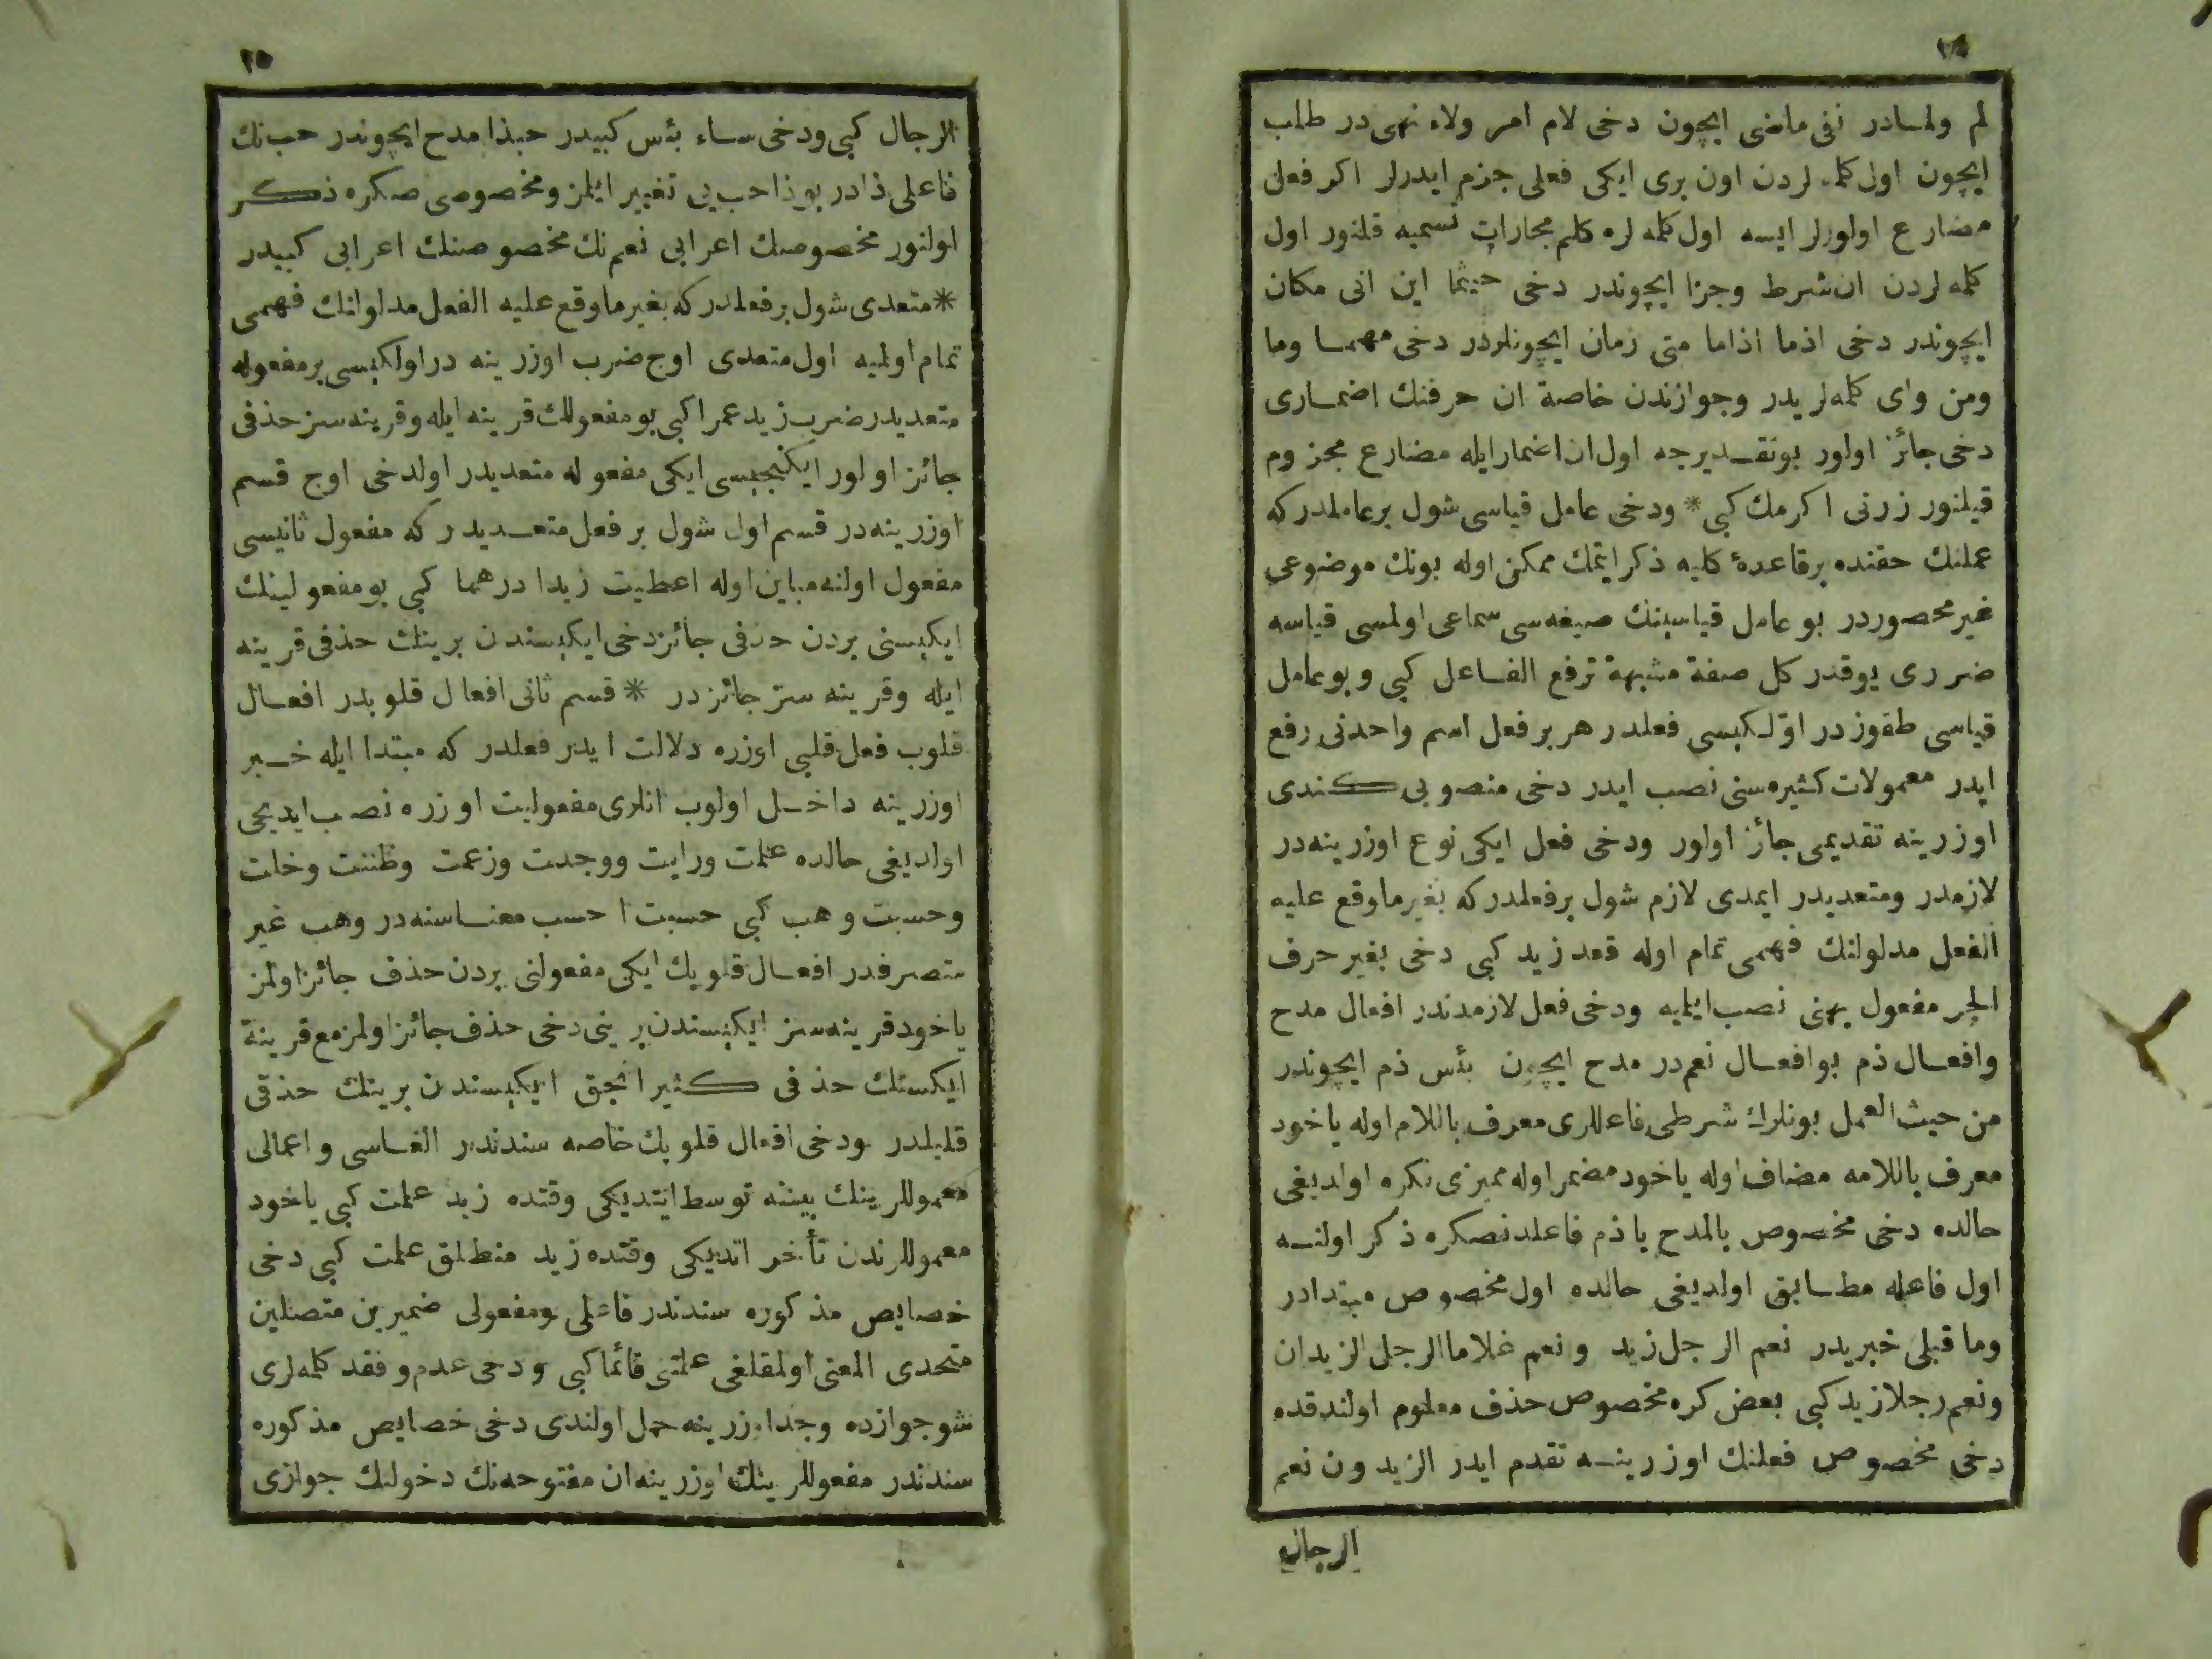 لم ولمادر نفی ماضی ایچون دخی لام امر ولاء نهی در طلب
ایچون اول کلمه لردن اون بری ایکی فعلی جزم ایدرلر اکر فعل
مضارع اولورلر ایسه اول کلمه لره کلم مجازات تسمیه قلنور اول
کلمه لردن ان شرط وجزا ایچوندر دخی حیثما این انی مکان
ایچوندر دخی اذما اذاما متی زمان ایچونلردر دخی مهمسا وما
ومن وای کلمه لریدر وجوازندن خاصة ان حرفنك اضمساری
دخی جائز اولور بوتقدیرجه اول ان اضمار ایله مضارع مجزوم
قیلنور زرنی اکرمك کبی * ودخی عامل قیاسی شول برعاملدر که
عملنك حقنده برقاعدهٔ کلیه ذکر ایتمك ممکن اوله بونك موضوعی
غیر محصوردر بو عامل قیاسینك صیغه سی سماعی اولمسی قیاسه
ضرری یوقدر کل صفة مشبهة ترفع الفاعل کبی و بو عامل
قیاسی طقوزدر اوّلکیسی فعلدر هر بر فعل اسم واحدنی رفع
ایدر معمولات کثیره سنی نصب ایدر دخی منصوبی کندی
اوزرینه تقدیمی جائز اولور ودخی فعل ایکی نوع اوزرینه در
لازمدر ومتعدیدر ایمدی لازم شول برفعلدر که بغیر ما وقع علیه
الفعل مدلولنك فهمی تمام اوله قعد زید کبی دخی بغیر حرف
الجر مفعول بهنی نصب ایلمیه ودخی فعل لازمدندر افعال مدح
وافعال ذم بو افعال نعم در مدح ایچون بئس ذم ایچوندر
من حیث العمل بونلرك شرطی فاعللری معرف باللام اوله یاخود
معرف باللامه مضاف اوله یاخود مضمر اوله ممیزی نکره اولدیغی
حالده دخی مخصوص بالمدح یا ذم فاعلدنصکره ذکر اولنسه
اول فاعله مطابق اولدیغی حالده اول مخصوص مبتدادر
وما قبلی خبریدر نعم الرجل زید ونعم غلاما الرجل الزیدان
ونعم رجلا زید کبی بعض کره مخصوص حذف معلوم اولندقده
دخی مخصوص فعلنك اوزرینسه تقدم ایدر الزیدون نعم
الرجال
٢٥
الرجال کبی ودخی ساء بئس کبیدر حبذا مدح ایچوندر حب نك
فاعلی ذادر بو ذا حب یی تغییر ایلمز ومخصوصی صکره ذکر
اولنور مخصوصك اعرابی نعم نك مخصوصنك اعرابی کبیدر
* متعدی شول برفعلدر که بغیر ما وقع علیه الفعل مدلولنك فهمی
تمام اولمیه اول متعدی اوج ضرب اوزرینه در اولکیسی بر مفعوله
متعدیدر ضرب زید عمرا کبی بو مفعولك قرینه ایله وقرینه سز حذفی
جائز اولور ایکنجیسی ایکی مفعوله متعدیدر اولدخی اوج قسم
اوزرینه در قسم اول شول بر فعل متعدیدر که مفعول ثانیسی
مفعول اولنه مباین اوله اعطیت زیدا درهما کبی بو مفعولینك
ایکیسنی بردن حذفی جائز دخی ایکیسندن برینك حذفی قرینه
ایله وقرینه سز جائزدر * قسم ثانی افعال قلوبدر افعال
قلوب فعل قلبی اوزره دلالت ایدر فعلدر که مبتدا ایله خبر
اوزرینه داخل اولوب انلری مفعولیت اوزره نصب ایدیجی
اولدیغی حالده علمت ورایت ووجدت وزعمت وظننت وخلت
وحسبت وهب کبی حسبت احسب معناسنه در وهب غیر
متصرفدر افعال قلوبك ایکی مفعولنی بردن حذف جائز اولمز
یاخود قرینه سز ایکیسندن برینی دخی حذف جائز اولمز مع قرینة
ایکسنك حذفی کثیر انجق ایکیسندن برینك حذفی
قلیلدر ودخی افعال قلوبك خاصه سندندر الغاسی و اعمالی
معموللرینك بیننه توسط ایتدیکی وقتده زید علمت کبی یاخود
معموللرندن تأخر اتدیکی وقتده زید منطلق علمت کبی دخی
خصایص مذکوره سندندر فاعلی ومفعولی ضمیرین متصلین
متحدی المعنی اولمقلغی علمتنی قائما کبی ودخی عدم وفقد کلمه لری
شو جوازده وجد اوزرینه حمل اولندی دخی خصایص مذکوره
سندندر مفعوللرینك اوزرینه ان مفتوحه نك دخولنك جوازی